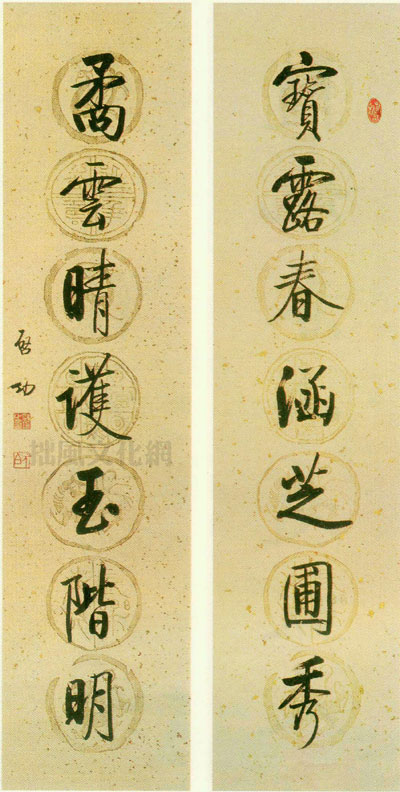 寶露春涵芝圃秀
矞雲晴護玉階明
啓功
拙風文化網